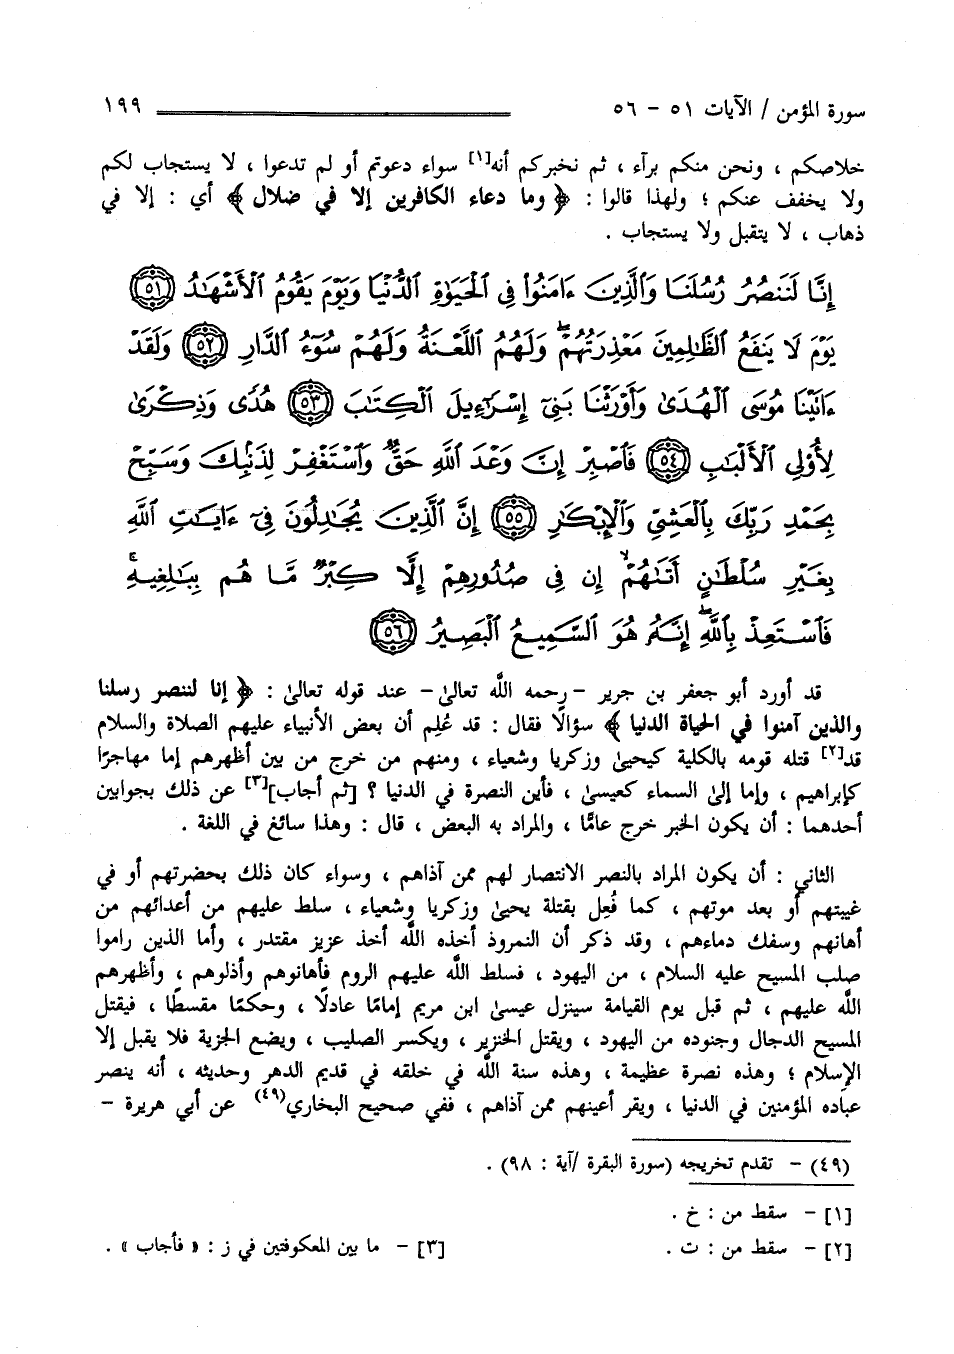 سورة المؤمن / الآيات ٥١ – ٥٦ ١٩٩
خلاصكم ، ونحن منكم برآء ، ثم نخبركم أنه[١] سواء دعوتم أو لم تدعوا ، لا يستجاب لكم
ولا يخفف عنكم ؛ ولهذا قالوا : ﴿ وما دعاء الكافرين إلا في ضلال ﴾ أي : إلا في
ذهاب ، لا يتقبل ولا يستجاب .
إِنَّا لَنَنصُرُ رُسُلَنَا وَٱلَّذِينَ ءَامَنُوا۟ فِى ٱلْحَيَوٰةِ ٱلدُّنْيَا وَيَوْمَ يَقُومُ ٱلْأَشْهَـٰدُ ٥١
يَوْمَ لَا يَنفَعُ ٱلظَّـٰلِمِينَ مَعْذِرَتُهُمْ ۖ وَلَهُمُ ٱللَّعْنَةُ وَلَهُمْ سُوٓءُ ٱلدَّارِ ٥٢ وَلَقَدْ
ءَاتَيْنَا مُوسَى ٱلْهُدَىٰ وَأَوْرَثْنَا بَنِىٓ إِسْرَٰٓءِيلَ ٱلْكِتَـٰبَ ٥٣ هُدًى وَذِكْرَىٰ
لِأُو۟لِى ٱلْأَلْبَـٰبِ ٥٤ فَٱصْبِرْ إِنَّ وَعْدَ ٱللَّهِ حَقٌّ وَٱسْتَغْفِرْ لِذَنۢبِكَ وَسَبِّحْ
بِحَمْدِ رَبِّكَ بِٱلْعَشِىِّ وَٱلْإِبْكَـٰرِ ٥٥ إِنَّ ٱلَّذِينَ يُجَـٰدِلُونَ فِىٓ ءَايَـٰتِ ٱللَّهِ
بِغَيْرِ سُلْطَـٰنٍ أَتَىٰهُمْ ۙ إِن فِى صُدُورِهِمْ إِلَّا كِبْرٌ مَّا هُم بِبَـٰلِغِيهِ ۚ
فَٱسْتَعِذْ بِٱللَّهِ ۖ إِنَّهُۥ هُوَ ٱلسَّمِيعُ ٱلْبَصِيرُ ٥٦
قد أورد أبو جعفر بن جرير – رحمه اللَّه تعالىٰ – عند قوله تعالىٰ : ﴿ إنا لننصر رسلنا
والذين آمنوا في الحياة الدنيا ﴾ سؤالًا فقال : قد عُلِم أن بعض الأنبياء عليهم الصلاة والسلام
قد[٢] قتله قومه بالكلية كيحيىٰ وزكريا وشعياء ، ومنهم من خرج من بين أظهرهم إما مهاجرًا
كإبراهيم ، وإما إلىٰ السماء كعيسىٰ ، فأين النصرة في الدنيا ؟ [ثم أجاب][٣] عن ذلك بجوابين
أحدهما : أن يكون الخبر خرج عامًّا ، والمراد به البعض ، قال : وهذا سائغ في اللغة .
الثاني : أن يكون المراد بالنصر الانتصار لهم ممن آذاهم ، وسواء كان ذلك بحضرتهم أو في
غيبتهم أو بعد موتهم ، كما فُعِل بقتلة يحيىٰ وزكريا وشعياء ، سلط عليهم من أعدائهم من
أهانهم وسفك دماءهم ، وقد ذكر أن النمروذ أخذه اللَّه أخذ عزيز مقتدر ، وأما الذين راموا
صلب المسيح عليه السلام ، من اليهود ، فسلط اللَّه عليهم الروم فأهانوهم وأذلوهم ، وأظهرهم
اللَّه عليهم ، ثم قبل يوم القيامة سينزل عيسىٰ ابن مريم إمامًا عادلًا ، وحكمًا مقسطًا ، فيقتل
المسيح الدجال وجنوده من اليهود ، ويقتل الخنزير ، ويكسر الصليب ، ويضع الجزية فلا يقبل إلا
الإسلام ؛ وهذه نصرة عظيمة ، وهذه سنة اللَّه في خلقه في قديم الدهر وحديثه ، أنه ينصر
عباده المؤمنين في الدنيا ، ويقر أعينهم ممن آذاهم ، ففي صحيح البخاري(٤٩) عن أبي هريرة –
(٤٩) – تقدم تخريجه (سورة البقرة /آية : ٩٨) .
[١] – سقط من : خ .
[٢] – سقط من : ت . [٣] – ما بين المعكوفتين في ز : « فأجاب » .